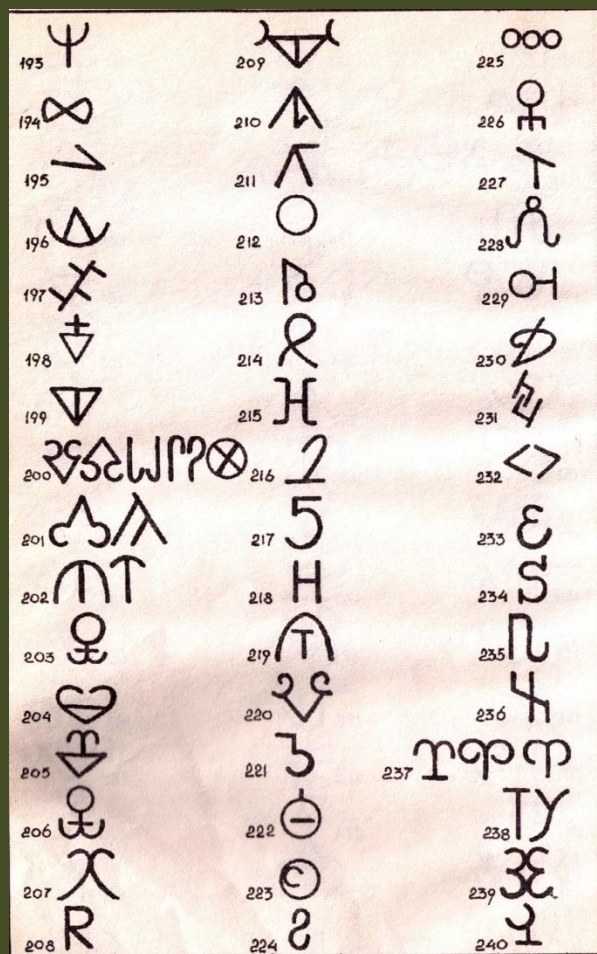 193
194
195
196
197
198
199
200
201
202
203
204
205
206
207
208 R
209
210
211
212
213
214
215
216
217
218 H
219
220
221
222
223
224
225
226
227
228
229
230
231
232
233
234
235
236
237
238
239
240